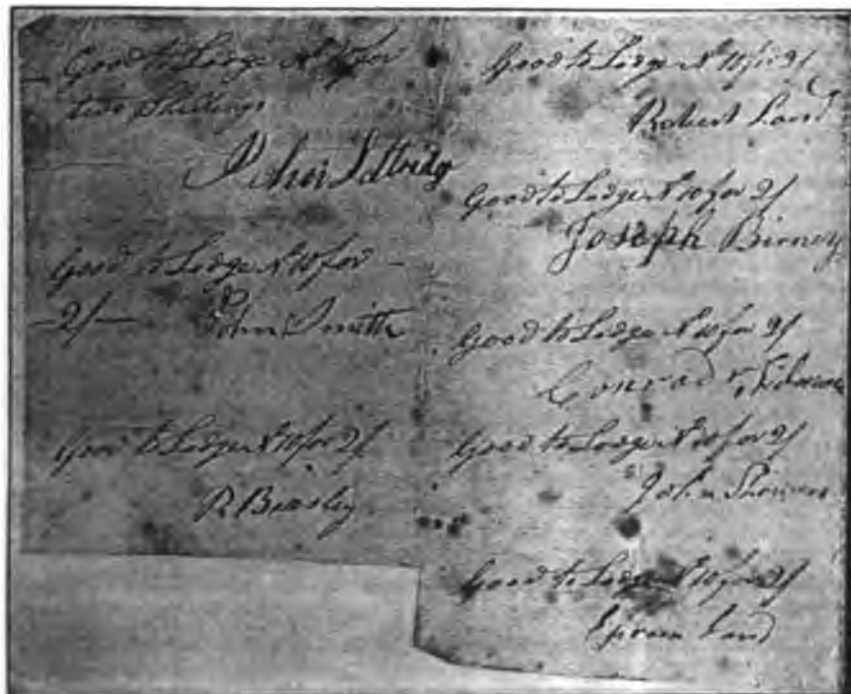 Good to Lodge N 10 for
two Shillings
John
Good to Lodge N 10 for
2/ John Smith
Good to Lodge N 10 for 2/
R Beasley
Good to Lodge N 10 for 2/
Robert Land
Good to Lodge N 10 for 2/
Joseph Birney
Good to Lodge N 10 for 2/
Conrad
Good to Lodge N 10 for 2/
John
Good to Lodge N 10 for 2/
Ephraim Land